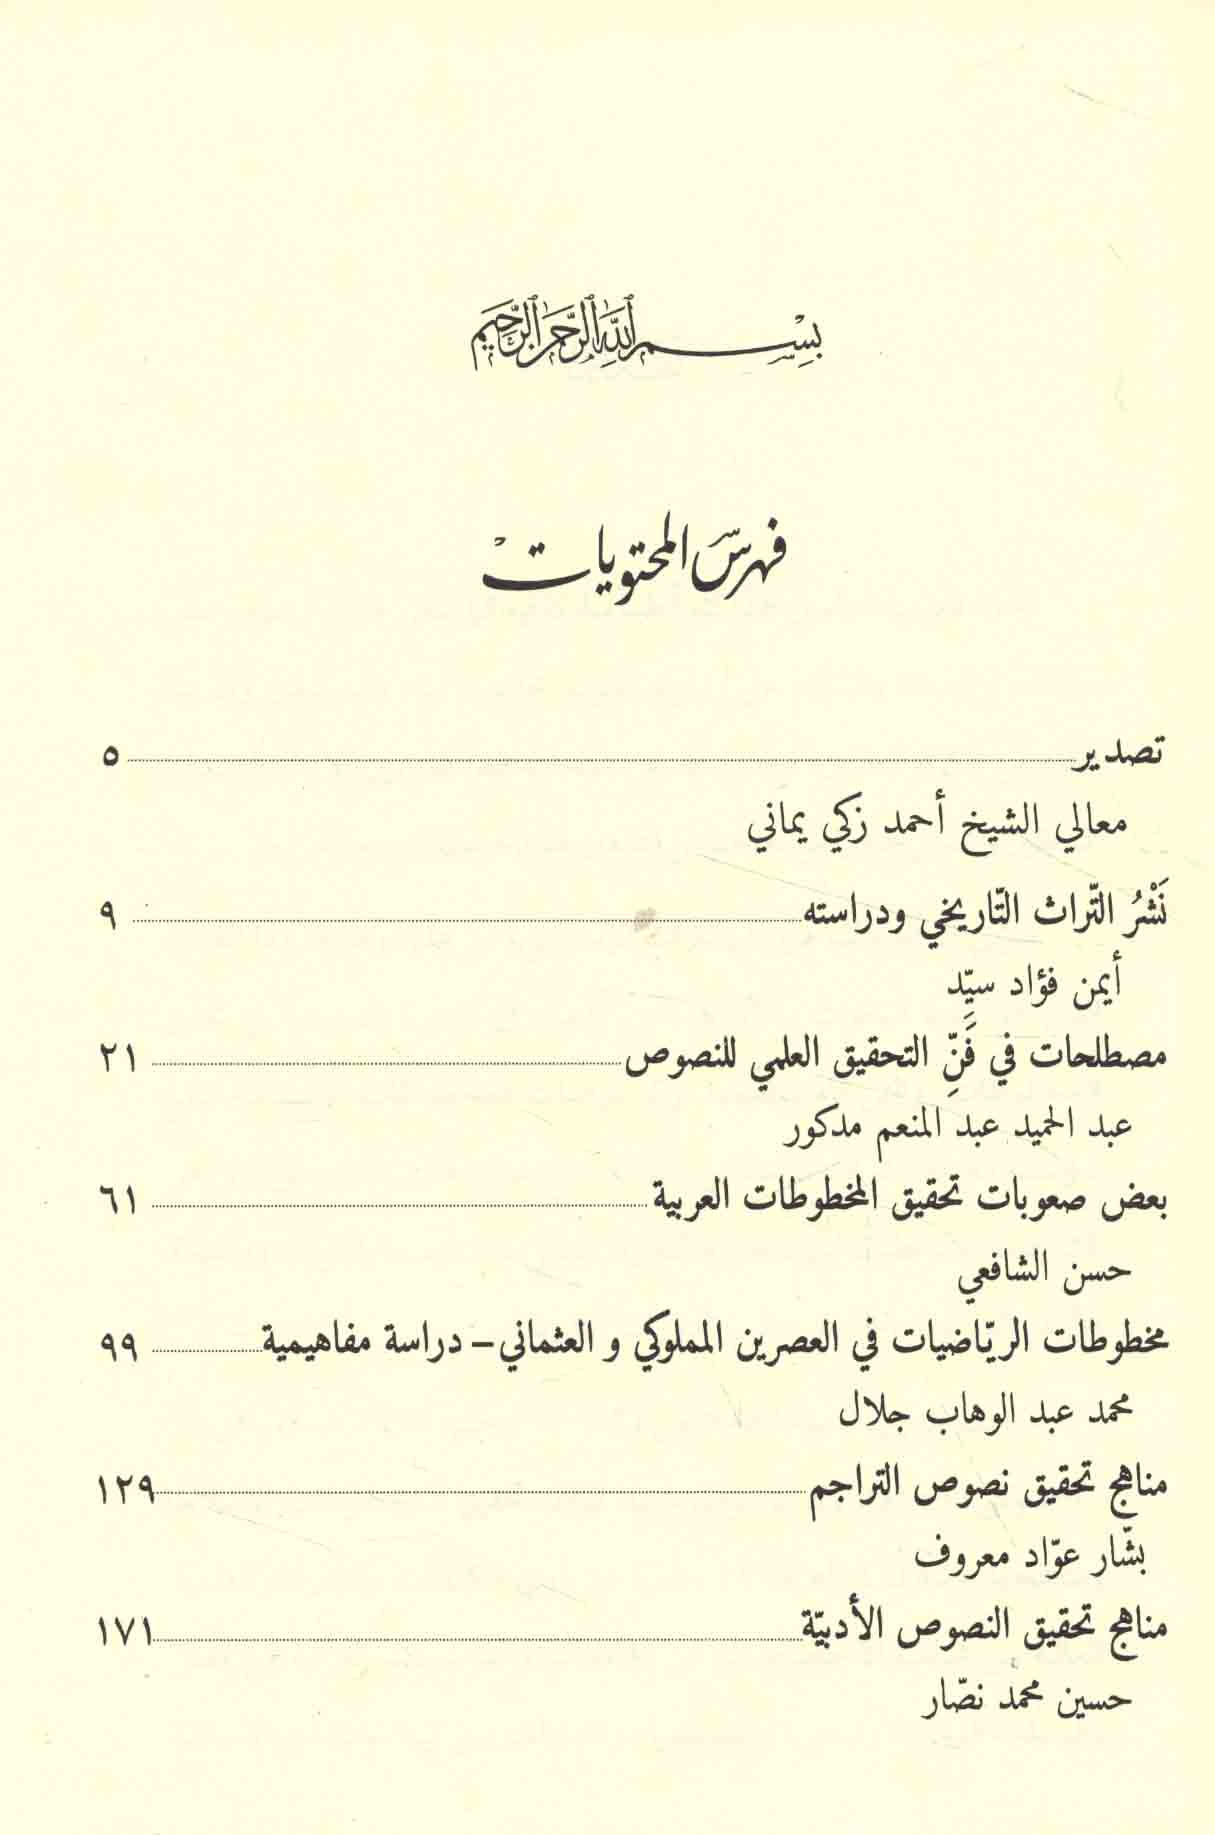 بِسْمِ اللَّهِ الرَّحْمَنِ الرَّحِيمِ
فهرسّ المحتويات
تصدير ........ ٥
معالي الشيخ أحمد زكي يماني
نَشْرُ التّراث التّاريخي ودراسته ........ ٩
أيمن فؤاد سيِّد
مصطلحات في فَنِّ التحقيق العلمي للنصوص ........ ٢١
عبد الحميد عبد المنعم مدكور
بعض صعوبات تحقيق المخطوطات العربية ........ ٦١
حسن الشافعي
مخطوطات الريّاضيات في العصرين المملوكي و العثماني – دراسة مفاهيمية ........ ٩٩
محمد عبد الوهاب جلال
مناهج تحقيق نصوص التراجم ........ ١٢٩
بشّار عوّاد معروف
مناهج تحقيق النصوص الأدبيّة ........ ١٧١
حسين محمد نصّار